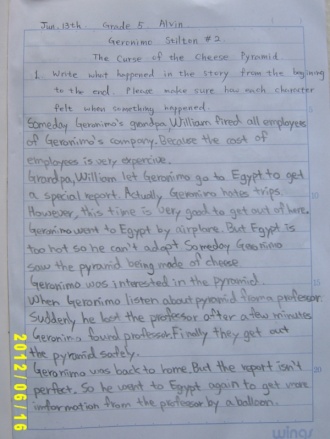 Jun. 13th Grade 5 Alvin
Geronimo Stilton #2
The Curse of the Cheese Pyramid
1. Write what happened in the story from the beginning
to the end. Please make sure how each character
felt when something happened.
Someday Geronimo's grandpa, William fired all employees
of Geronimo's company. Because the cost of
employees is very expensive.
Grandpa, William let Geronimo go to Egypt to get
a special report. Actually Geronimo hates trips.
However, this time is very good to get out of here.
Geronimo went to Egypt by airplane. But Egypt is
too hot so he can't adapt Someday Geronimo
saw the pyramid being made of cheese
Geronimo was interested in the pyramid.
When Geronimo listen about pyramid from a professor
Suddenly he lost the professor after a few minutes
Geronimo found professor. Finally they get out
the pyramid safely.
Geronimo was back to home. But the report isn't
perfect. So he went to Egypt again to get more
information from the professor by a balloon.
2012/06/16
winors